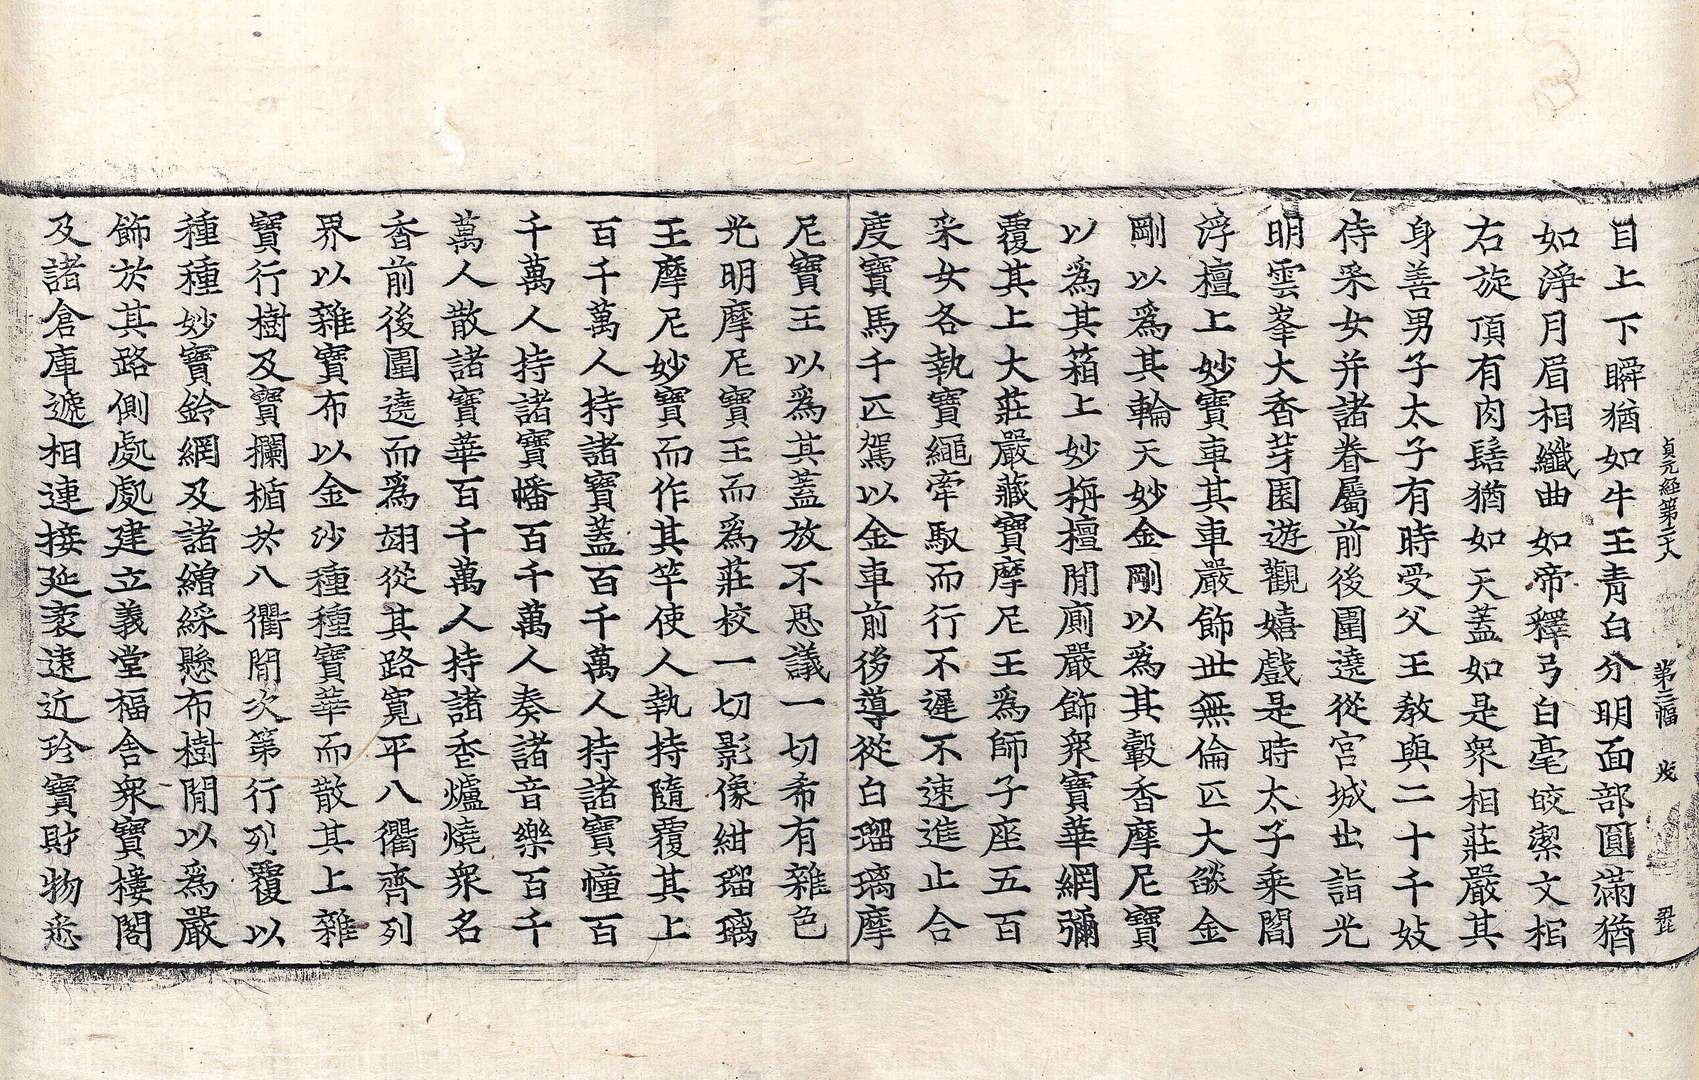 貞元経第二十八 第三幅 发
目上下瞬猶如牛王青白分明面部圓滿猶
如淨月眉相纖曲如帝釋弓白毫皎潔文相
右旋頂有肉髻猶如天蓋如是衆相莊嚴其
身善男子太子有時受父王教與二十千妓
侍采女并諸眷屬前後圍遶從宮城出詣光
明雲峯大香芽園遊觀嬉戲是時太子乘閻
浮檀上妙寶車其車嚴飾世無倫匹大燄金
剛以爲其輪天妙金剛以爲其轂香摩尼寶
以爲其箱上妙栴檀閒廁嚴飾衆寶華網彌
覆其上大莊嚴藏寶摩尼王爲師子座五百
采女各執寶繩牽馭而行不遲不速進止合
度寶馬千匹駕以金車前後導從白瑠璃摩
尼寶王以爲其蓋放不思議一切希有雜色
光明摩尼寶王而爲莊校一切影像紺瑠璃
王摩尼妙寶而作其竿使人執持隨覆其上
百千萬人持諸寶蓋百千萬人持諸寶幢百
千萬人持諸寶幡百千萬人奏諸音樂百千
萬人散諸寶華百千萬人持諸香爐燒衆名
香前後圍遶而爲翊從其路寬平八衢齊列
界以雜寶布以金沙種種寶華而散其上雜
寶行樹及寶欄楯於八衢閒次第行列覆以
種種妙寶鈴網及諸繒綵懸布樹閒以爲嚴
飾於其路側處處建立義堂福舍衆寶樓閣
及諸倉庫遞相連接延袤遠近珍寶財物悉